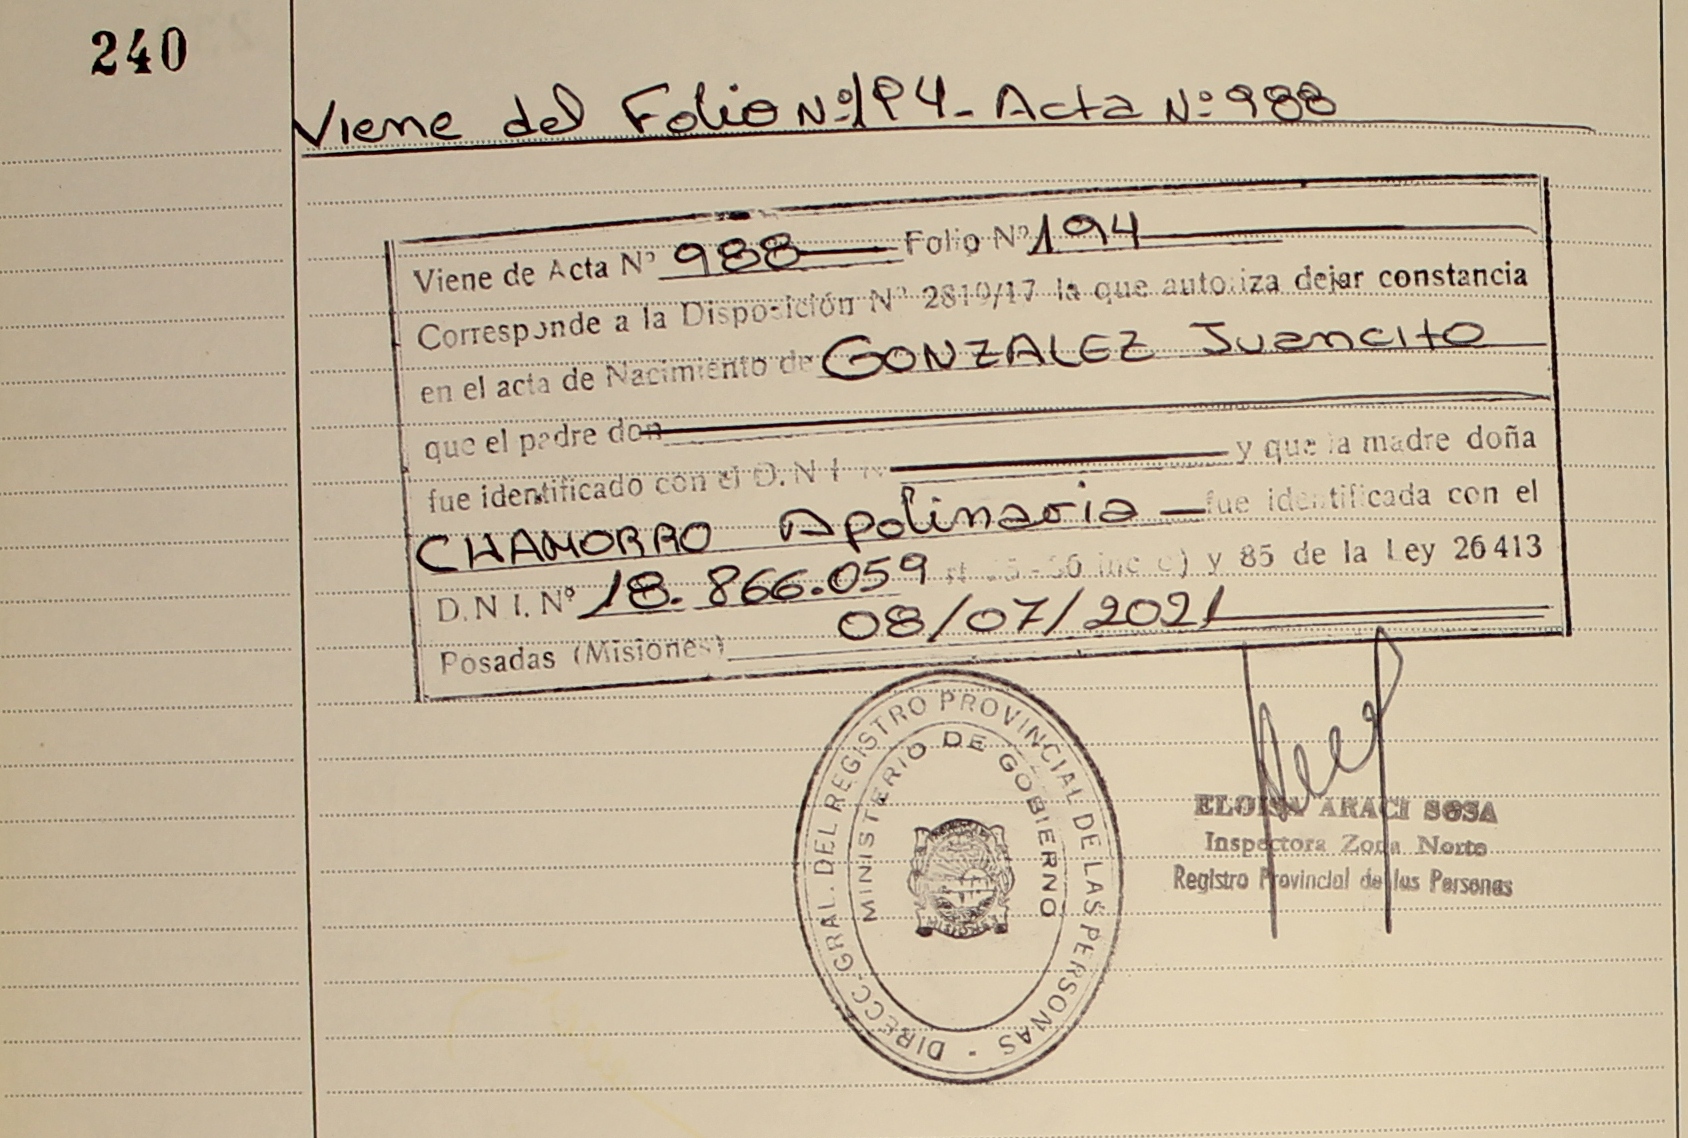 240
Viene del Folio Nº 194 - Acta Nº 988
Viene de Acta Nº 988 Folio Nº 194
Corresponde a la Disposición Nº 2810/17 la que autoriza dejar constancia
en el acta de Nacimiento de GONZALEZ Juancito
que el padre don
fue identificado con el D.N.I. Nº y que la madre doña
CHAMORRO Apolinaria fue identificada con el
D.N.I. Nº 18.866.059 inc c) y 85 de la Ley 26413
Posadas (Misiones) 08/07/2021
DIRECC. GRAL. DEL REGISTRO PROVINCIAL DE LAS PERSONAS -
MINISTERIO DE GOBIERNO
ELOISA ARACI SOSA
Inspectora Zona Norte
Registro Provincial de las Personas